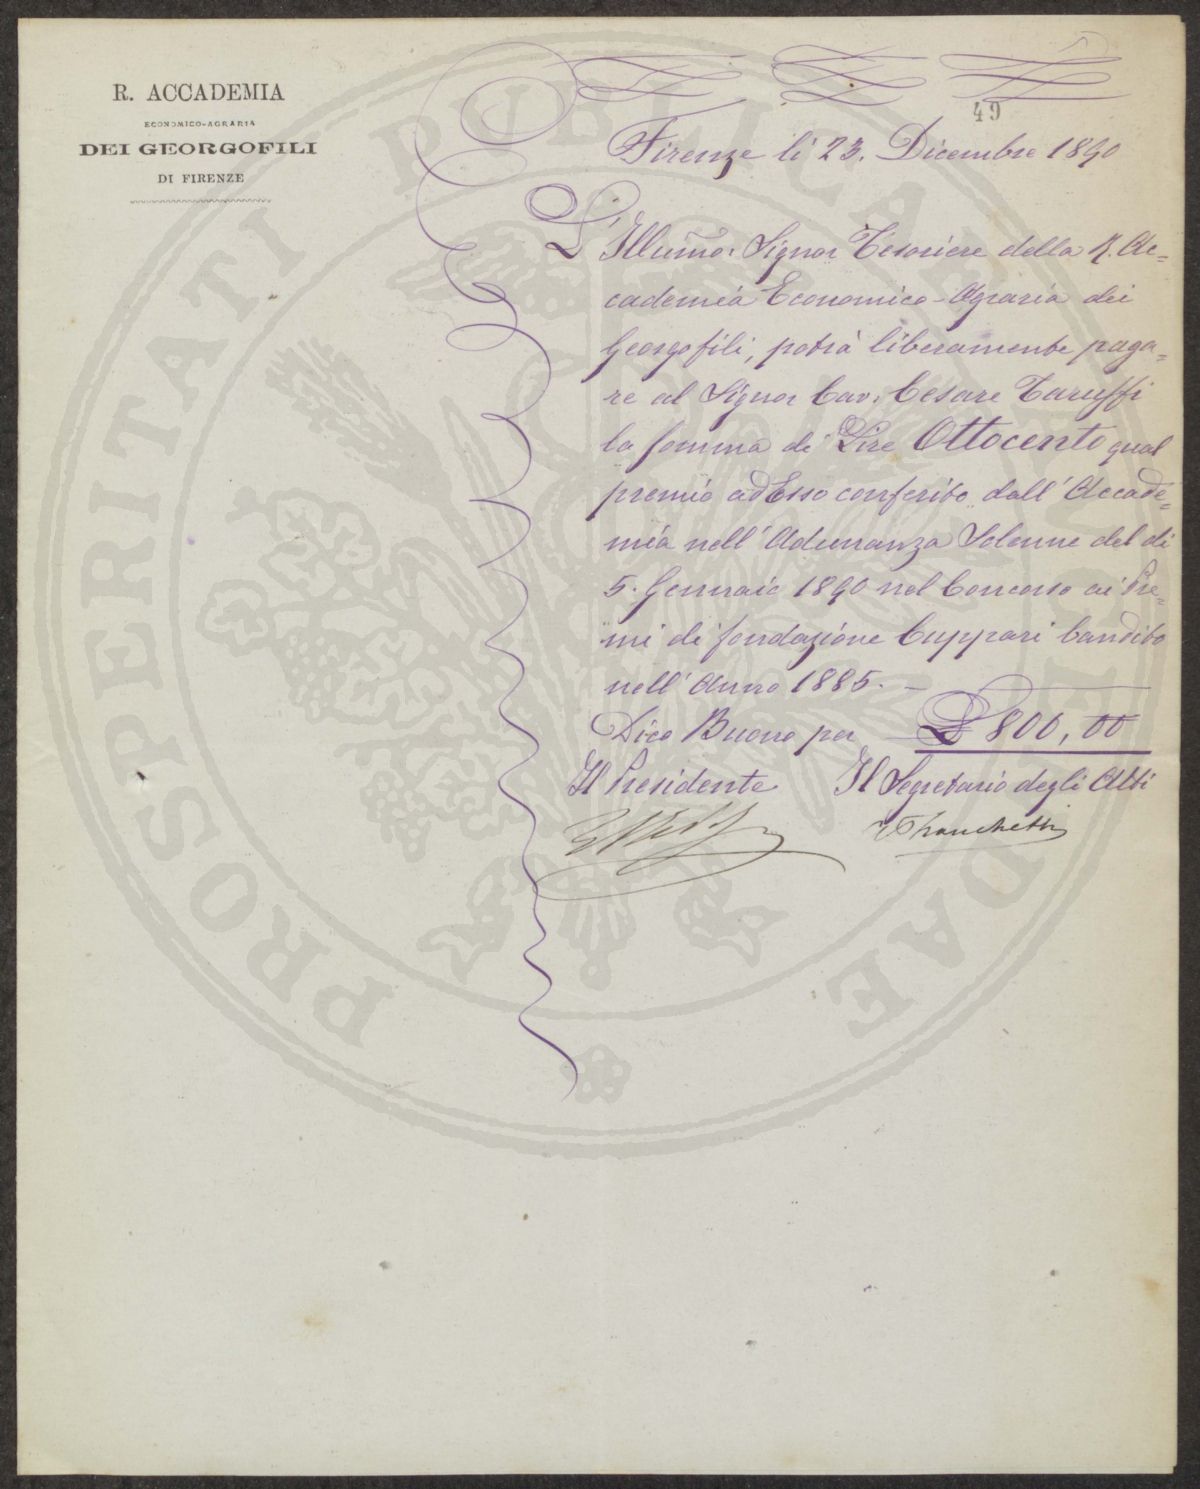 R. ACCADEMIA
ECONOMICO-AGRARIA
DEI GEORGOFILI
DI FIRENZE
49
Firenze li 23. Dicembre 1890
L'Illumo: Signor Tesoriere della R. Ac=
cademia Economico-Agraria dei
Georgofili, potrà liberamente paga=
re al Signor Cav. Cesare Taruffi
la somma di Lire Ottocento qual
premio ad Esso conferito dall'Accade=
mia nell'Adunanza Solenne del dì
5. Gennaio 1890 nel Concorso ai Pre=
mi di fondazione Cuppari bandito
nell'Anno 1885. —
Dico Buono per £ 800,00
Il Presidente Il Segretario degli Atti
Franchetti
PROSPERITATI PUBLICAE AUGENDAE